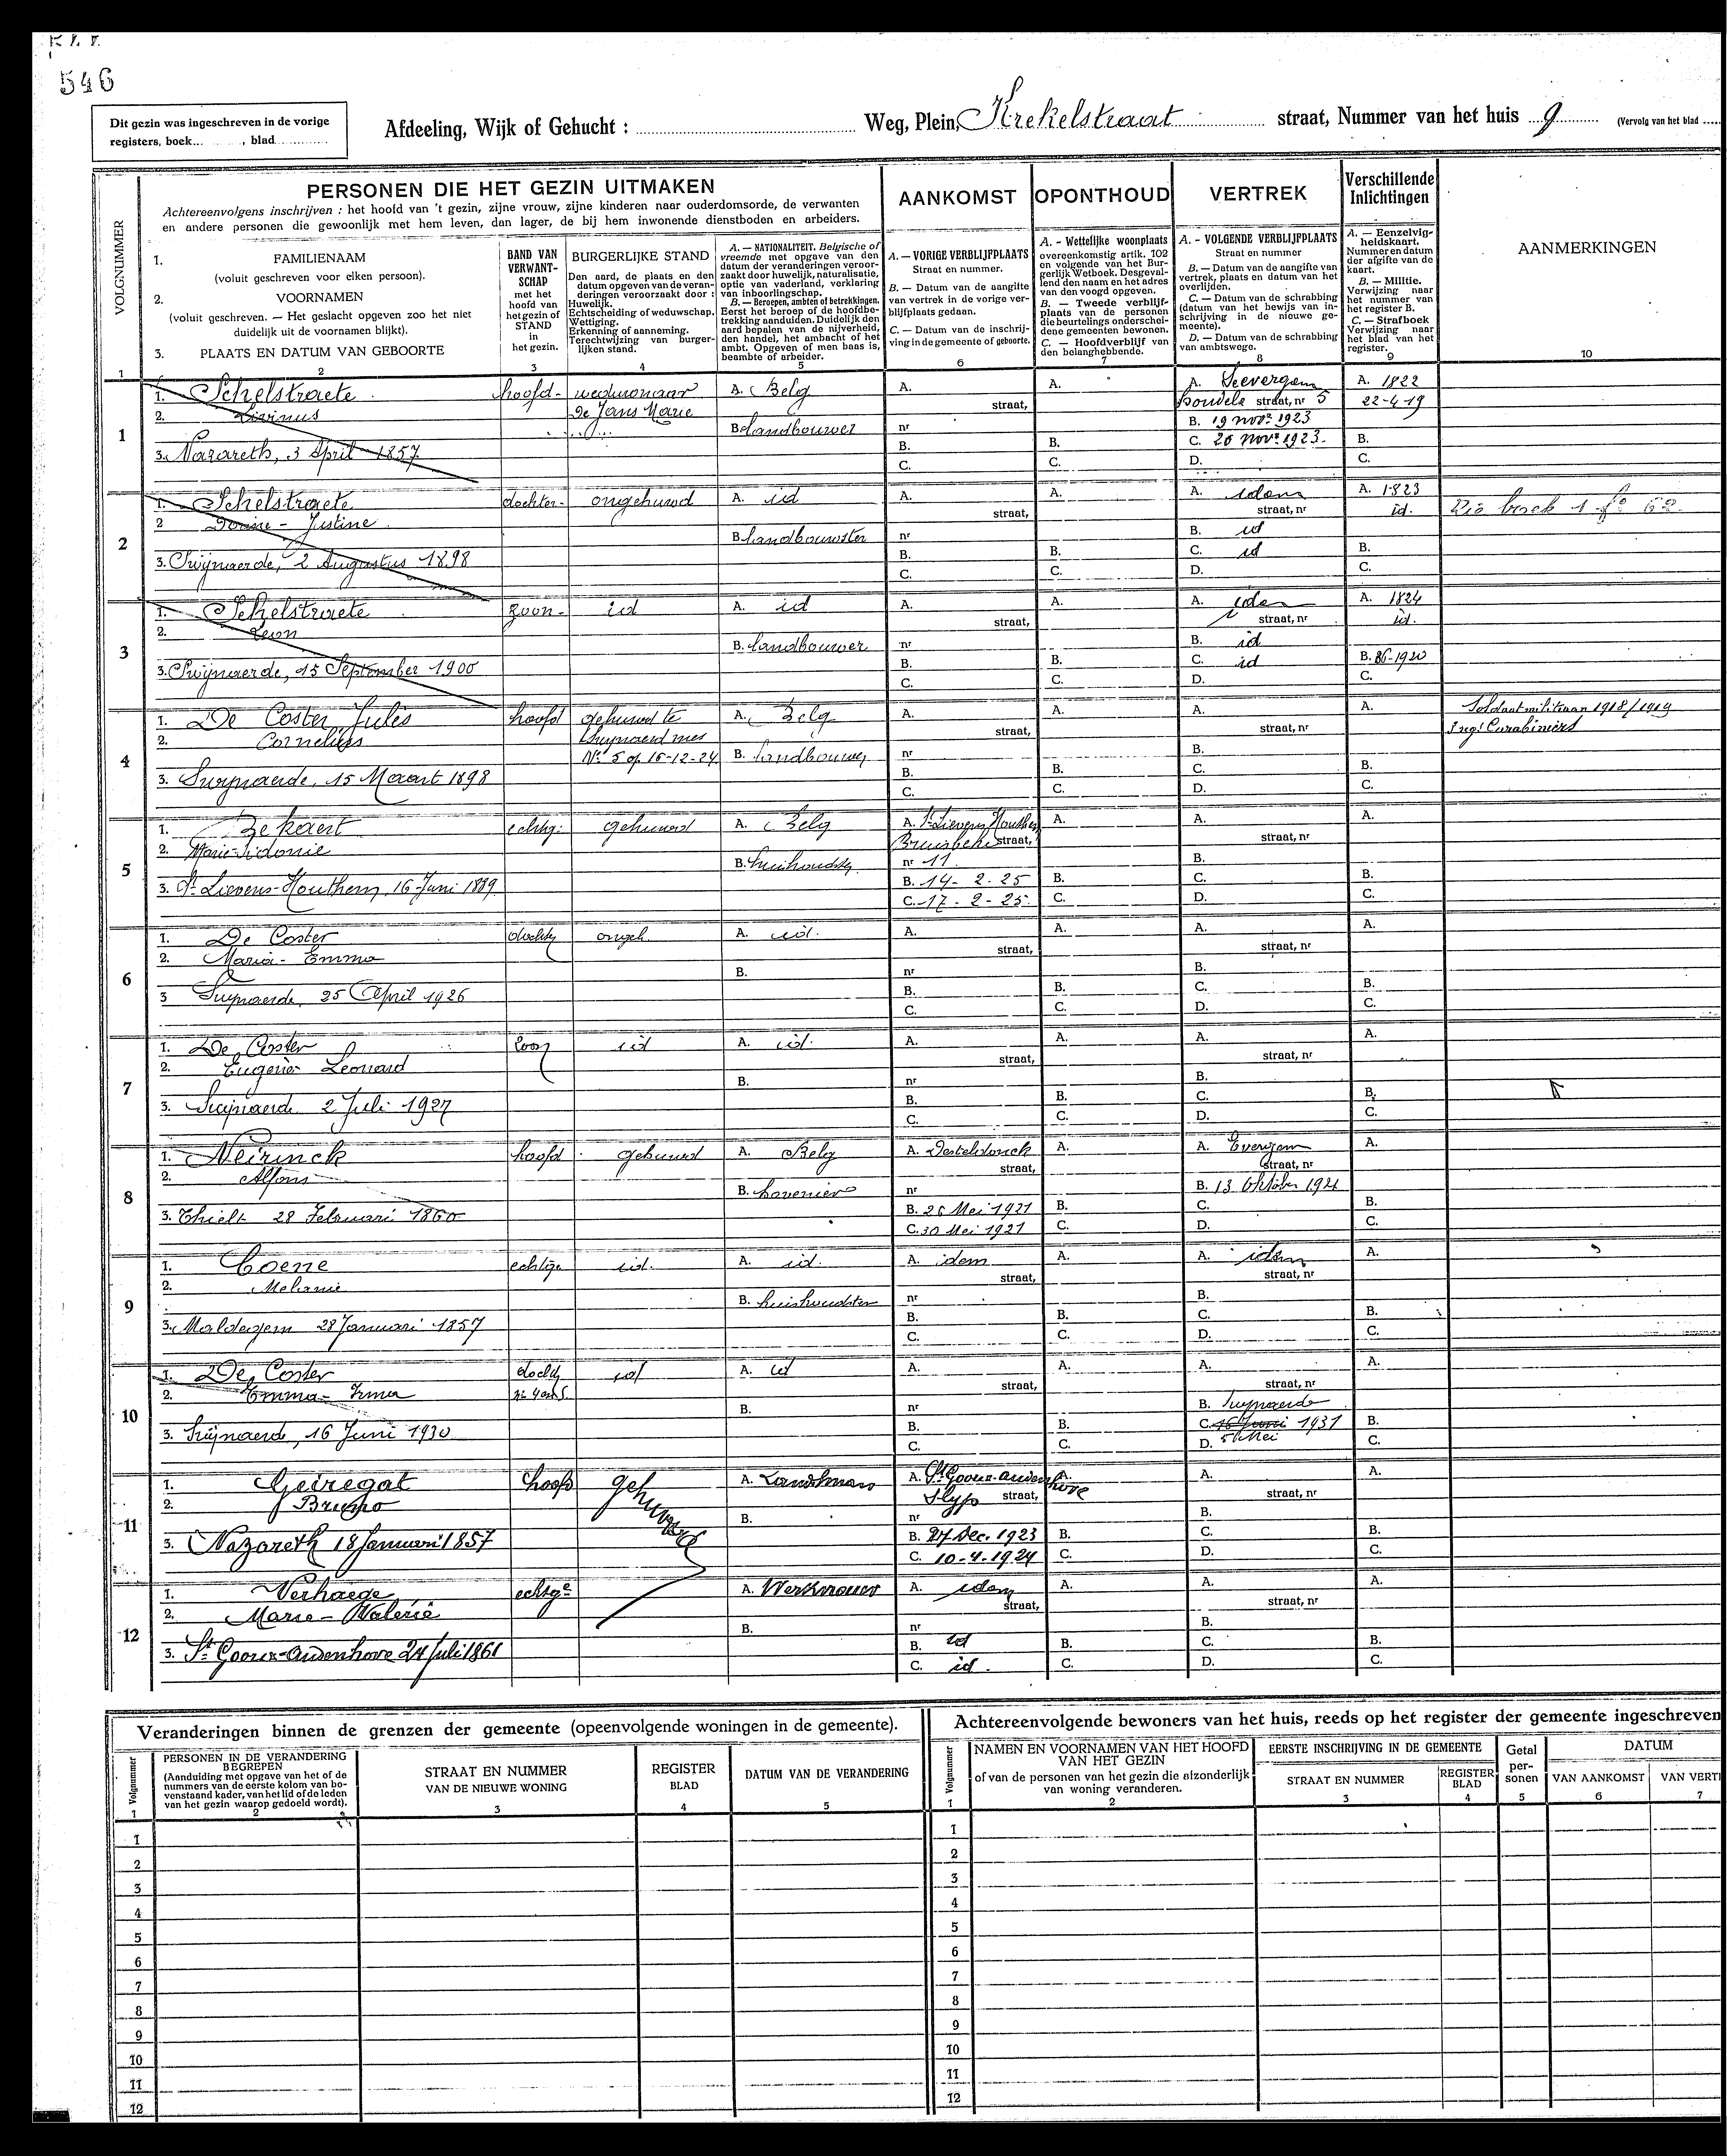 546
Dit gezin was ingeschreven in de vorige
registers, boek... , blad...
Afdeeling, Wijk of Gehucht : Weg, Plein, Krekelstraat straat, Nummer van het huis 9 (Vervolg van het blad
PERSONEN DIE HET GEZIN UITMAKEN
Achtereenvolgens inschrijven : het hoofd van 't gezin, zijne vrouw, zijne kinderen naar ouderdomsorde, de verwanten
en andere personen die gewoonlijk met hem leven, dan lager, de bij hem inwonende dienstboden en arbeiders.
AANKOMST
OPONTHOUD
VERTREK
Verschillende
Inlichtingen
AANMERKINGEN
VOLGNUMMER
1. FAMILIENAAM
(voluit geschreven voor elken persoon).
2. VOORNAMEN
(voluit geschreven. — Het geslacht opgeven zoo het niet
duidelijk uit de voornamen blijkt).
3. PLAATS EN DATUM VAN GEBOORTE
BAND VAN
VERWANT-
SCHAP
met het
hoofd van
het gezin of
STAND
in
het gezin.
BURGERLIJKE STAND
Den aard, de plaats en den
datum opgeven van de veran-
deringen veroorzaakt door :
Huwelijk.
Echtscheiding of weduwschap.
Wettiging.
Erkenning of aanneming.
Terechtwijzing van burger-
lijken stand.
A. — NATIONALITEIT. Belgische of
vreemde met opgave van den
datum der veranderingen veroor-
zaakt door huwelijk, naturalisatie,
optie van vaderland, verklaring
van inboorlingschap.
B. — Beroepen, ambten of betrekkingen.
Eerst het beroep of de hoofdbe-
trekking aanduiden. Duidelijk den
aard bepalen van de nijverheid,
den handel, het ambacht of het
ambt. Opgeven of men baas is,
beambte of arbeider.
A. — VORIGE VERBLIJFPLAATS
Straat en nummer.
B. — Datum van de aangifte
van vertrek in de vorige ver-
blijfplaats gedaan.
C. — Datum van de inschrij-
ving in de gemeente of geboorte.
A. - Wettelijke woonplaats
overeenkomstig artik. 102
en volgende van het Bur-
gerlijk Wetboek. Desgeval-
lend den naam en het adres
van den voogd opgeven.
B. — Tweede verblijf-
plaats van de personen
die beurtelings onderschei-
dene gemeenten bewonen.
C. — Hoofdverblijf van
den belanghebbende.
A. - VOLGENDE VERBLIJFPLAATS
Straat en nummer
B. — Datum van de aangifte van
vertrek, plaats en datum van het
overlijden.
C. — Datum van de schrabbing
(datum van het bewijs van in-
schrijving in de nieuwe ge-
meente).
D. — Datum van de schrabbing
van ambtswege.
A. — Eenzelvig-
heidskaart.
Nummer en datum
der afgifte van de
kaart.
B. — Militie.
Verwijzing naar
het nummer van
het register B.
C. — Strafboek
Verwijzing naar
het blad van het
register.
1 2 3 4 5 6 7 8 9 10
1
1. Schelstraete hoofd- weduwnaar A. Belg A. A. A. Seevergem A. 1822
2. Livinus De Jans Marie straat, straat, nr 5 22-4-19
B landbouwer nr B. 19 novr 1923
3. Nazareth, 3 April 1857 B. B. C. 20 novr 1923. B.
C. C. D. C.
2
1. Schelstraete dochter- ongehuwd A. id A. A. A. idem A. 1823
2 Justine straat, straat, nr id.
B landbouwster nr B. id
3. Swijnaerde, 2 Augustus 1898 B. B. C. id B.
C. C. D. C.
3
1. Schelstraete zoon- id A. id A. A. A. idem A. 1824
2. Leon straat, straat, nr id.
B. landbouwer nr B. id
3. Swijnaerde, 15 September 1900 B. B. C. id B. 86-1920
C. C. D. C.
4
1. De Coster Jules hoofd gehuwd te A. Belg A. A. A. A. Soldaat militiaan 1918/1919
2. Cornelius straat, straat, nr Carabiniers
No 5 op 16-12-24 B. landbouwer nr B.
3. Swynaerde, 15 Maart 1898 B. B. C. B.
C. C. D. C.
5
1. Bekaert echtg. gehuwd A. Belg A. St Lievens Houthem A. A. A.
2. Marie-Sidonie straat, straat, nr
B. huishoudster nr 11 B.
3. St Lievens-Houthem, 16 Juni 1889 B. 14-2-25 B. C. B.
C. 17-2-25 C. D. C.
6
1. De Coster dochter ongeh. A. id. A. A. A. A.
2. Maria-Emma straat, straat, nr
B. nr B.
3 Swynaerde, 25 April 1926 B. B. C. B.
C. C. D. C.
7
1. De Coster zoon id A. id. A. A. A. A.
2. Leonard straat, straat, nr
B. nr B.
3. Swijnaerde 2 Juli 1927 B. B. C. B.
C. C. D. C.
8
1. Neirinck hoofd gehuwd A. Belg A. Desteldonck A. A. Evergem A.
2. Alfons straat, straat, nr
B. hovenier nr B. 13 Oktober 1921
3. Thielt 28 Februari 1860 B. 26 Mei 1921 B. C. B.
C. 30 Mei 1921 C. D. C.
9
1. Coene echtge id. A. id. A. idem A. A. idem A.
2. Melanie straat, straat, nr
B. huishoudster nr B.
3. Maldegem 28 Januari 1857 B. B. C. B.
C. C. D. C.
10
1. De Coster dochter id A. id A. A. A. A.
2. Emma-Irma straat, straat, nr
B. nr B. Swynaerde
3. Swijnaerde, 16 Juni 1930 B. B. C. 16 Juni 1931 B.
C. C. D. 5 Mei C.
11
1. Geiregat hoofd gehuwd A. Landsman A. St Goorix-audenhove A. A. A.
2. Bruno Slyp straat, straat, nr
B. nr B.
3. Nazareth 18 Januari 1857 B. 27 Dec. 1923 B. C. B.
C. 10-4-1924 C. D. C.
12
1. Verhaege echtge A. Werkvrouw A. idem A. A. A.
2. Marie-Valerie straat, straat, nr
B. nr B.
3. St Goorix-audenhove 24 Juli 1861 B. id B. C. B.
C. id. C. D. C.
Veranderingen binnen de grenzen der gemeente (opeenvolgende woningen in de gemeente).
Volgnummer
PERSONEN IN DE VERANDERING
BEGREPEN
(Aanduiding met opgave van het of de
nummers van de eerste kolom van bo-
venstaand kader, van het lid of de leden
van het gezin waarop gedoeld wordt).
STRAAT EN NUMMER
VAN DE NIEUWE WONING
REGISTER
BLAD
DATUM VAN DE VERANDERING
1 2 3 4 5
1
2
3
4
5
6
7
8
9
10
11
12
Achtereenvolgende bewoners van het huis, reeds op het register der gemeente ingeschreven
Volgnummer
NAMEN EN VOORNAMEN VAN HET HOOFD
VAN HET GEZIN
of van de personen van het gezin die afzonderlijk
van woning veranderen.
EERSTE INSCHRIJVING IN DE GEMEENTE
STRAAT EN NUMMER
REGISTER
BLAD
Getal
per-
sonen
DATUM
VAN AANKOMST
VAN VERT
1 2 3 4 5 6 7
1
2
3
4
5
6
7
8
9
10
11
12